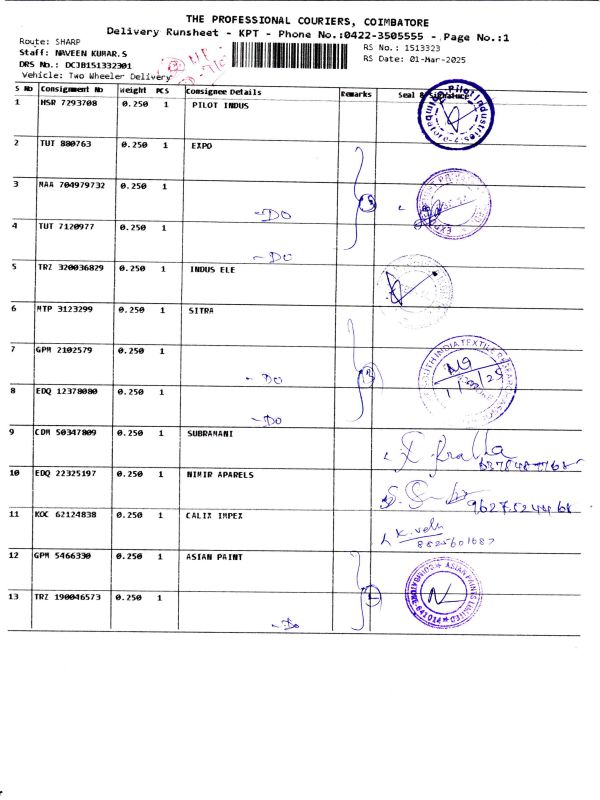 THE PROFESSIONAL COURIERS, COIMBATORE
Delivery Runsheet - KPT - Phone No.:0422-3505555 - Page No.:1
Route: SHARP
Staff: NAVEEN KUMAR.S
DRS No.: DCJB151332301
Vehicle: Two Wheeler Delivery
RS No.: 1513323
RS Date: 01-Mar-2025
S No Consignment No Weight PCS Consignee Details Remarks Seal & Signature
1 HSR 7293708 0.250 1 PILOT INDUS
Pilot Industries
2 TUT 880763 0.250 1 EXPO
3 MAA 704979732 0.250 1
-DO
4 TUT 7120977 0.250 1
-DO
5 TRZ 320036829 0.250 1 INDUS ELE
6 MTP 3123299 0.250 1 SITRA
SOUTH INDIA TEXTILE RESEARCH
7 GPM 2102579 0.250 1
-DO
8 EDQ 12378080 0.250 1
-DO
9 CDM 50347809 0.250 1 SUBRAMANI
10 EDQ 22325197 0.250 1 NIMIR APARELS
11 KOC 62124838 0.250 1 CALIX IMPEX
K. velu
8825601687
12 GPM 5466330 0.250 1 ASIAN PAINT
ASIAN PAINTS LIMITED
COIMBATORE-641014
13 TRZ 190046573 0.250 1
-DO